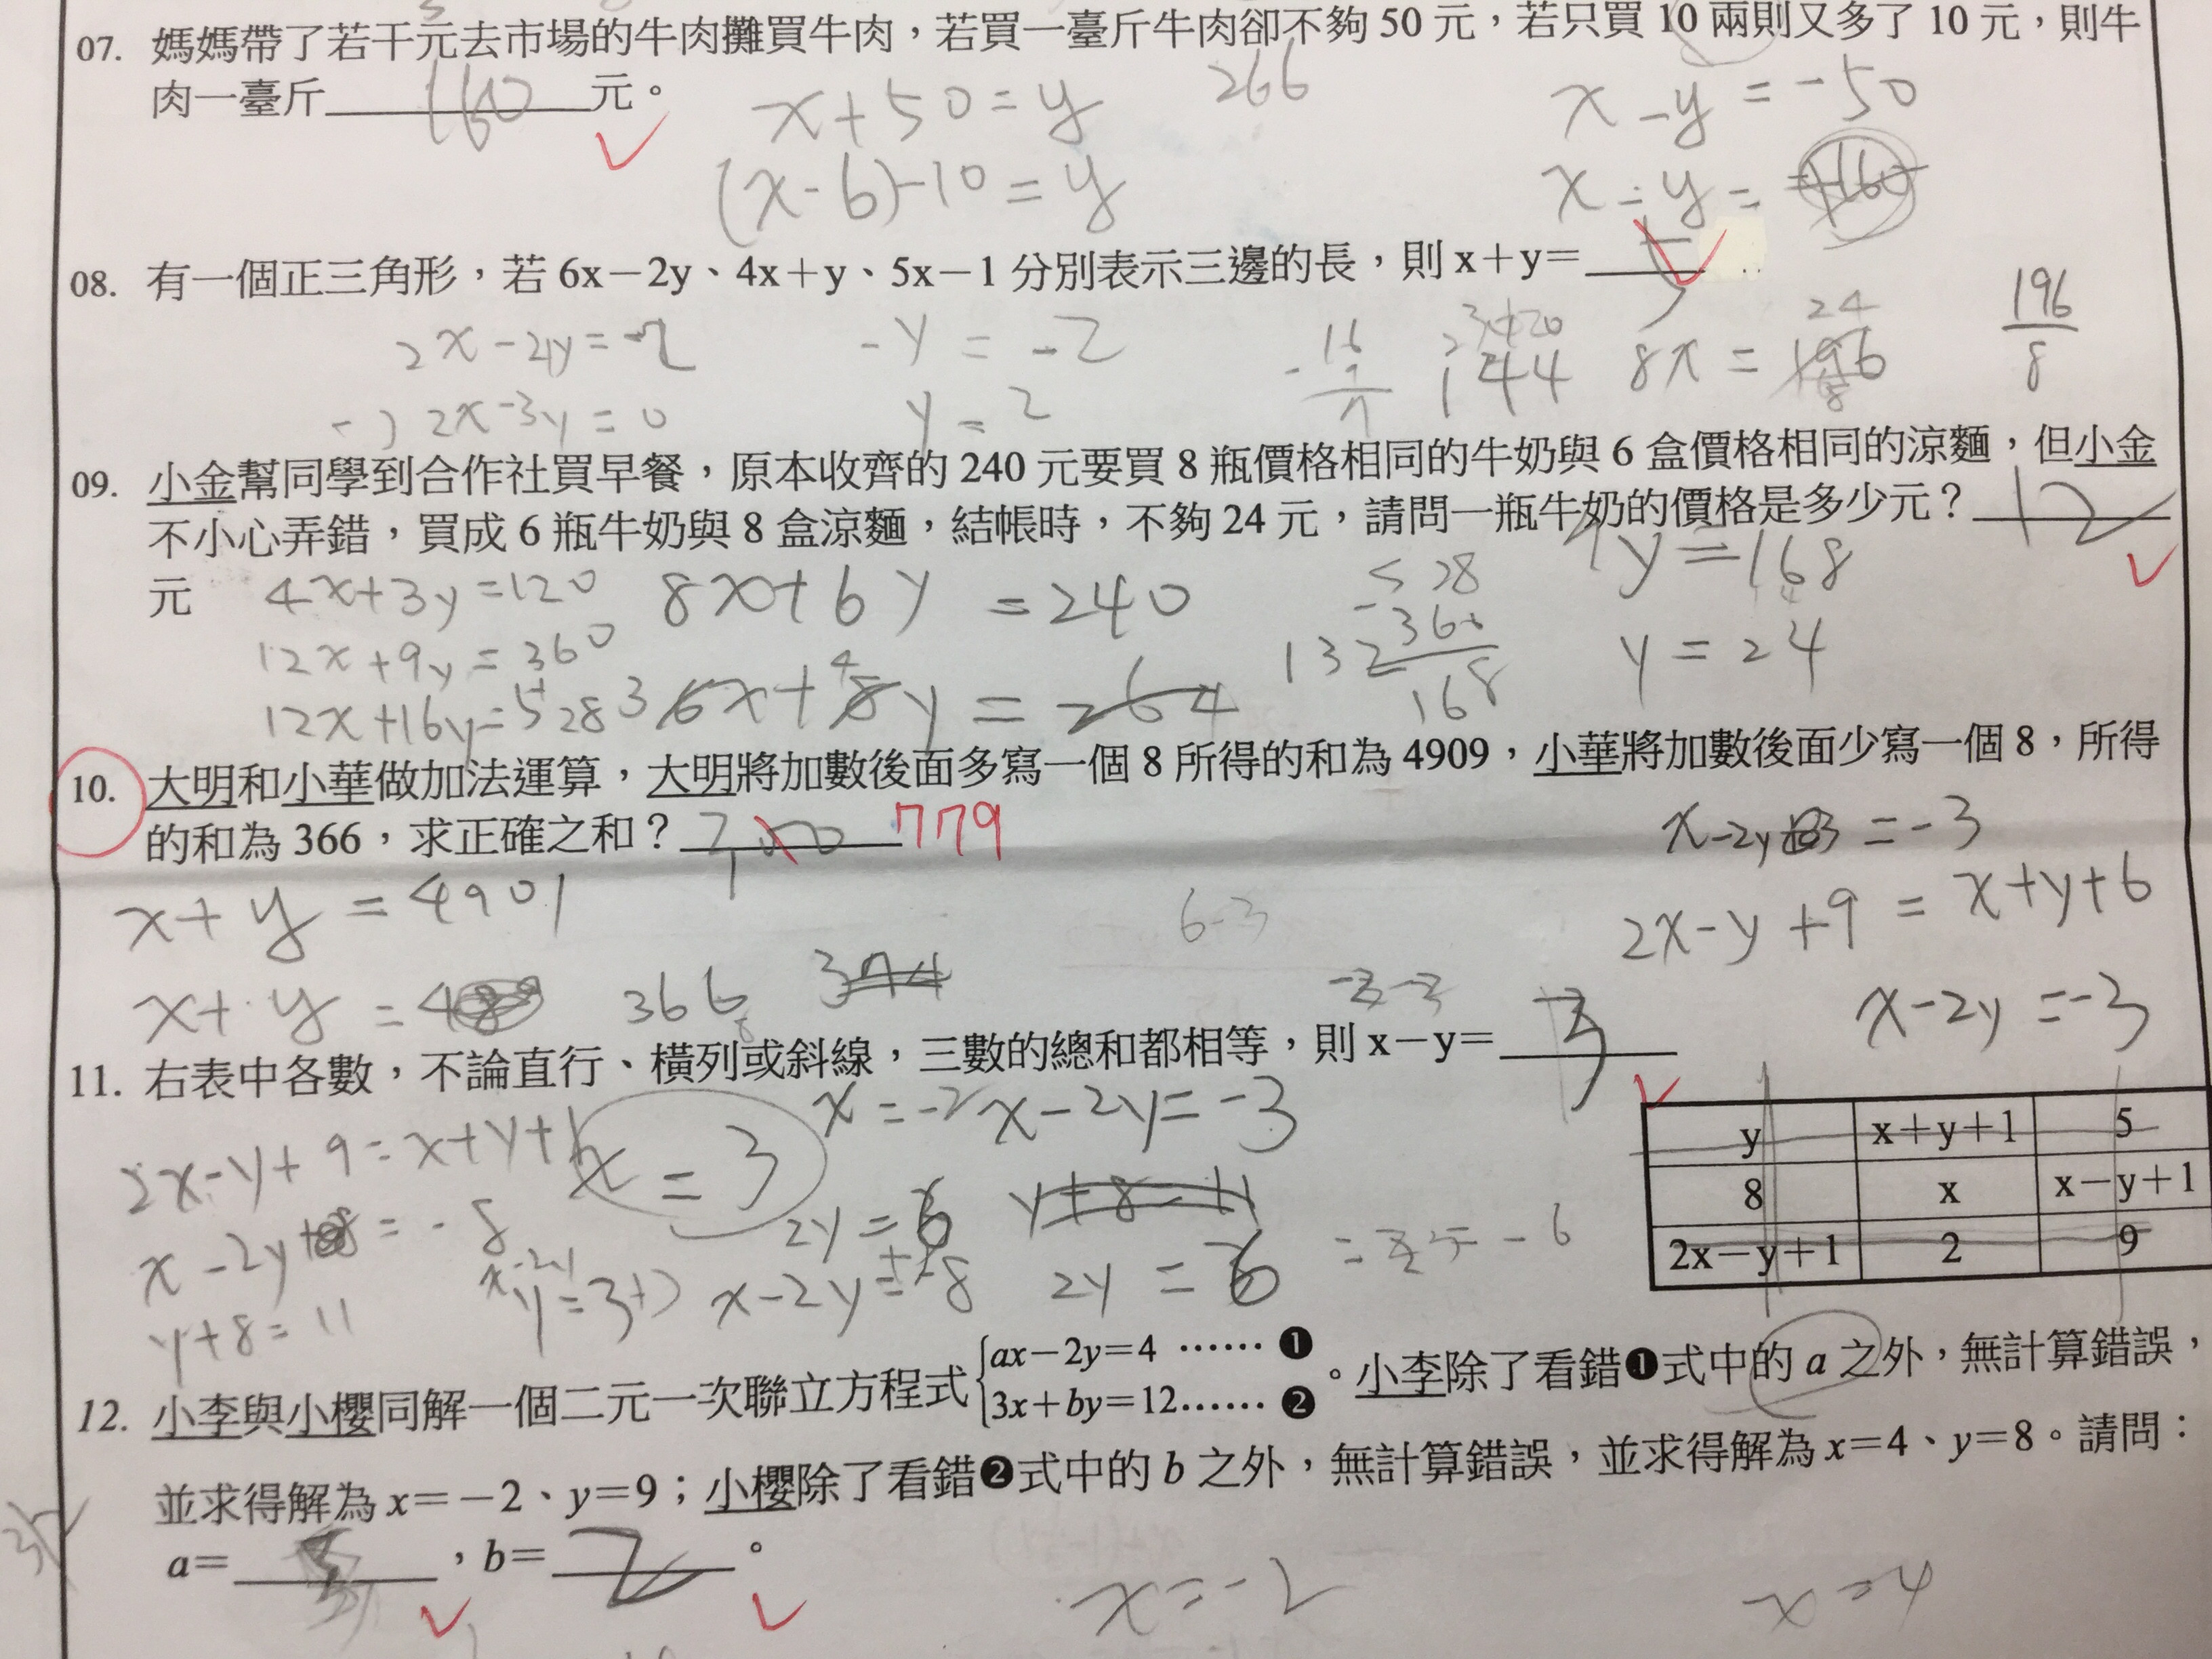 07. 媽媽帶了若干元去市場的牛肉攤買牛肉，若買一臺斤牛肉卻不夠 50 元，若只買 10 兩則又多了 10 元，則牛
肉一臺斤 160 元。
x+50=y
266
x-y=-50
(x-6)-10=y
x-y=
08. 有一個正三角形，若 6x－2y、4x＋y、5x－1 分別表示三邊的長，則 x＋y＝ 5
2x-2y=-2
-y=-2
144
8x=
24
196
8
-) 2x-3y=0
y=2
09. 小金幫同學到合作社買早餐，原本收齊的 240 元要買 8 瓶價格相同的牛奶與 6 盒價格相同的涼麵，但小金
不小心弄錯，買成 6 瓶牛奶與 8 盒涼麵，結帳時，不夠 24 元，請問一瓶牛奶的價格是多少元？ 12
元
4x+3y=120
8x+6y=240
528
7y=168
12x+9y=360
-360
132
168
y=24
12x+16y=528
36x+48y=264
10. 大明和小華做加法運算，大明將加數後面多寫一個 8 所得的和為 4909，小華將加數後面少寫一個 8，所得
的和為 366，求正確之和？ 779
x-2y =-3
x+y=4901
6-3
2x-y+9=x+y+6
x+y=4
366
x-2y=-3
11. 右表中各數，不論直行、橫列或斜線，三數的總和都相等，則 x－y＝ 3
2x-y+9=x+y+1
x=3
x=-2
x-2y=-3
y x＋y＋1 5
8 x x－y＋1
2x－y＋1 2 9
x-2y =-8
2y=6
y+8=11
y+8=11
x-2y=-8
2y=6
12. 小李與小櫻同解一個二元一次聯立方程式 {ax－2y＝4 …… ❶
3x＋by＝12…… ❷
。小李除了看錯❶式中的 a 之外，無計算錯誤，
並求得解為 x＝－2、y＝9；小櫻除了看錯❷式中的 b 之外，無計算錯誤，並求得解為 x＝4、y＝8。請問：
a＝ ，b＝ 2 。
x=-2
x=4